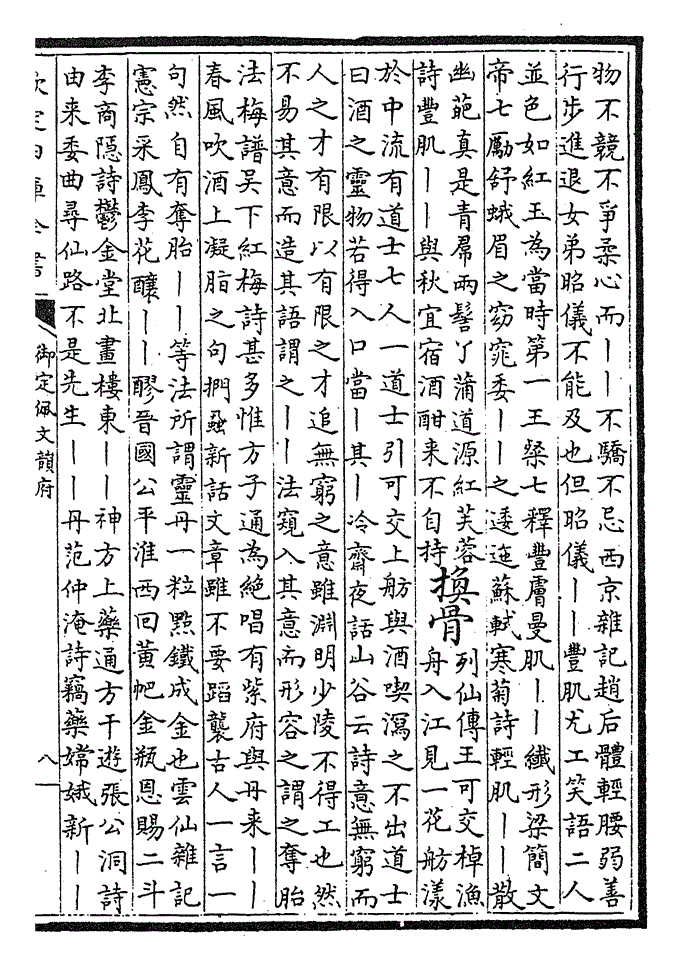 物不競不爭柔心而丨丨不驕不忌西京雜記趙后體輕腰弱善
行步進退女弟昭儀不能及也但昭儀丨丨豐肌尤工笑語二人
並色如紅玉為當時第一王粲七釋豐膚曼肌丨丨纖形梁簡文
帝七勵舒蛾眉之窈窕委丨丨之逶迤蘇軾寒菊詩輕肌丨丨散
幽葩真是青帬兩髻丫蒲道源紅芙蓉
詩豐肌丨丨與秋宜宿酒酣来不自持
換骨
列仙傳王可交棹漁
舟入江見一花舫漾
於中流有道士七人一道士引可交上舫與酒喫瀉之不出道士
曰酒之靈物若得入口當丨其丨冷齋夜話山谷云詩意無窮而
人之才有限以有限之才追無窮之意雖淵明少陵不得工也然
不易其意而造其語謂之丨丨法窺入其意而形容之謂之奪胎
法梅譜吴下紅梅詩甚多惟方子通為絶唱有紫府與丹来丨丨
春風吹酒上凝脂之句捫蝨新話文章雖不要蹈襲古人一言一
句然自有奪胎丨丨等法所謂靈丹一粒㸃鐵成金也雲仙雜記
憲宗采鳳李花釀丨丨醪晉國公平淮西回黃帊金瓶恩賜二斗
李商隱詩鬱金堂北畫樓東丨丨神方上藥通方干遊張公洞詩
由来委曲尋仙路不是先生丨丨丹范仲淹詩竊藥嫦娥新丨丨
欽定四庫全書
御定佩文韻府
八